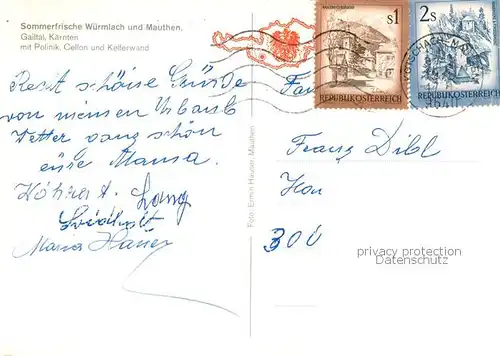 Sommerfrische Würmlach und Mauthen,
Gailtal, Kärnten
mit Polinik, Cellon und Kellerwand
s1
2s
REPUBLIK ÖSTERREICH
REPUBLIK ÖSTERREICH
KÖTSCHACH-MAUTHEN
Recht schöne Grüße
von meinen Urlaub
Wetter ganz schön
eure Mama
Lang
Maria
Foto Ermin Hauser, Mauthen
Franz Dibl
300
privacy protection
Datenschutz